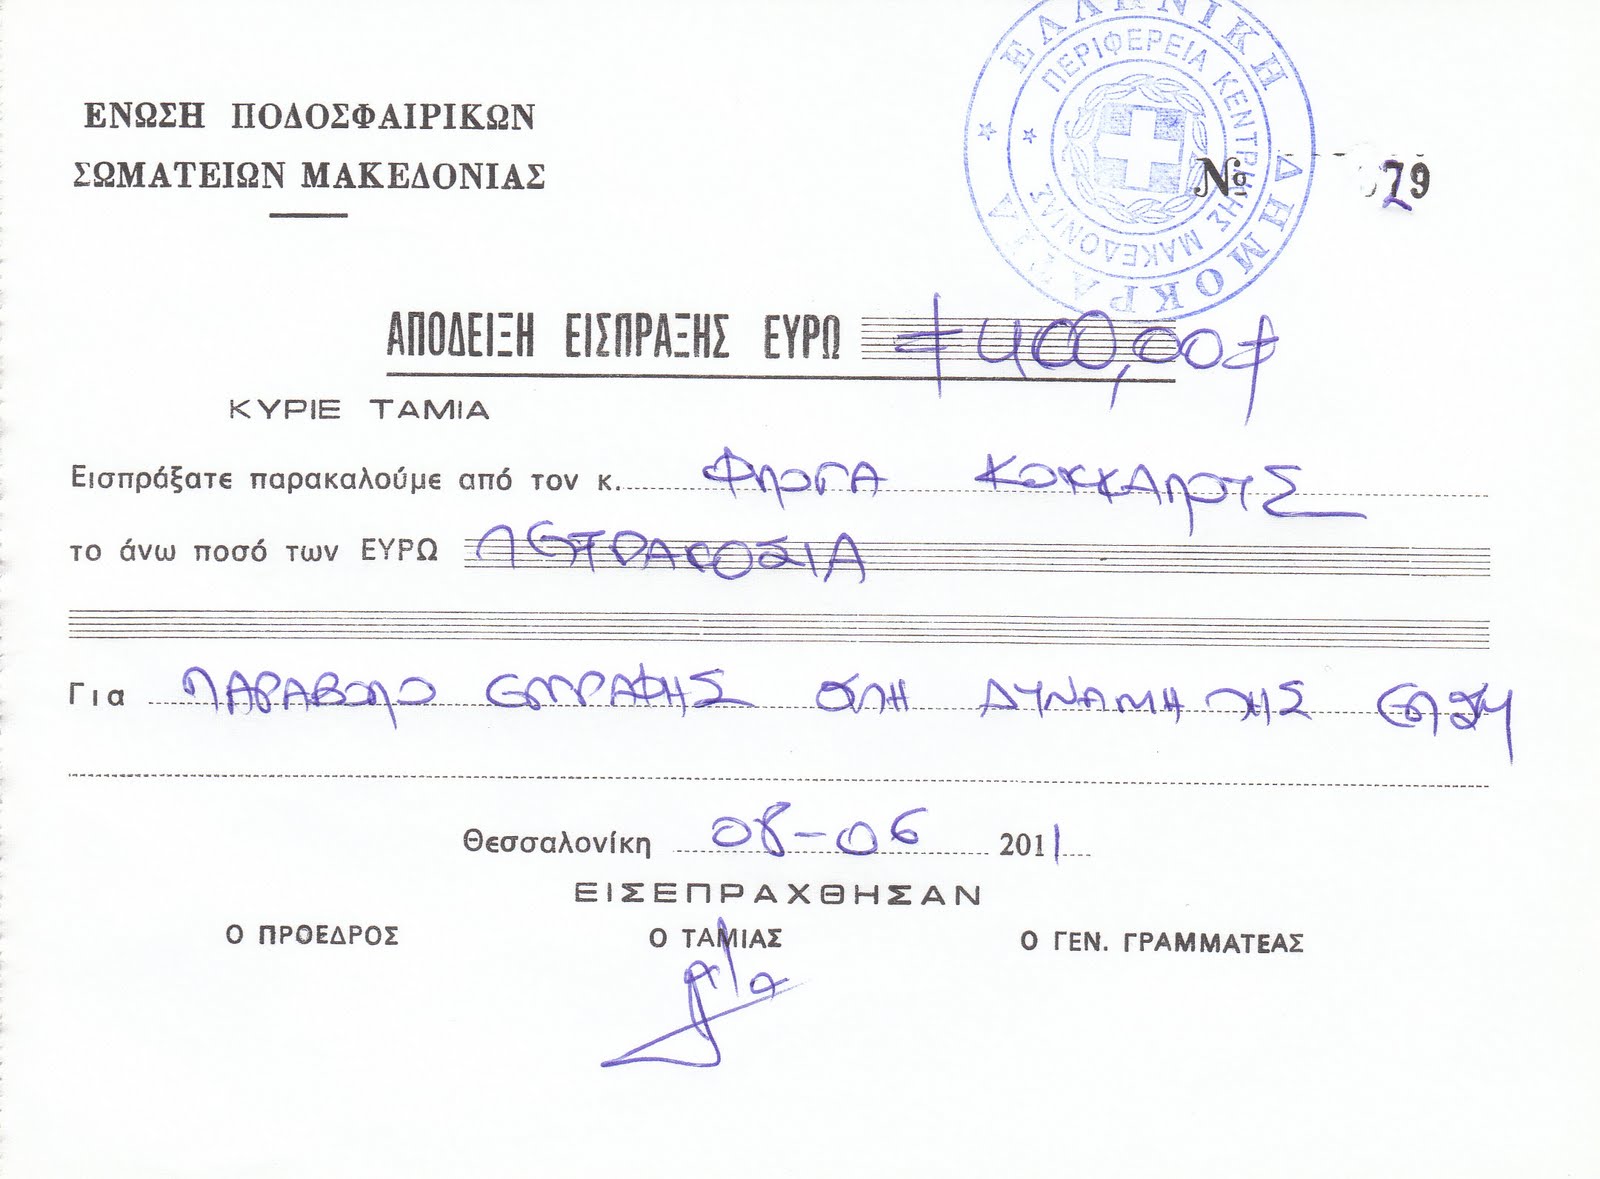 ΕΝΩΣΗ ΠΟΔΟΣΦΑΙΡΙΚΩΝ
ΣΩΜΑΤΕΙΩΝ ΜΑΚΕΔΟΝΙΑΣ
ΕΛΛΗΝΙΚΗ ΔΗΜΟΚΡΑΤΙΑ
ΠΕΡΙΦΕΡΕΙΑ ΚΕΝΤΡΙΚΗΣ ΜΑΚΕΔΟΝΙΑΣ
№ 79
ΑΠΟΔΕΙΞΗ ΕΙΣΠΡΑΞΗΣ ΕΥΡΩ ≠400,00≠
ΚΥΡΙΕ ΤΑΜΙΑ
Εισπράξατε παρακαλούμε από τον κ. ΦΛΟΓΑ ΚΟΚΚΑΛΟΥΣ
το άνω ποσό των ΕΥΡΩ ΤΕΤΡΑΚΟΣΙΑ
Για ΠΑΡΑΒΟΛΟ ΕΓΓΡΑΦΗΣ ΣΤΗ ΔΥΝΑΜΗ ΤΗΣ ΕΠΣΜ
Θεσσαλονίκη 08-06 2011
ΕΙΣΕΠΡΑΧΘΗΣΑΝ
Ο ΠΡΟΕΔΡΟΣ Ο ΤΑΜΙΑΣ Ο ΓΕΝ. ΓΡΑΜΜΑΤΕΑΣ